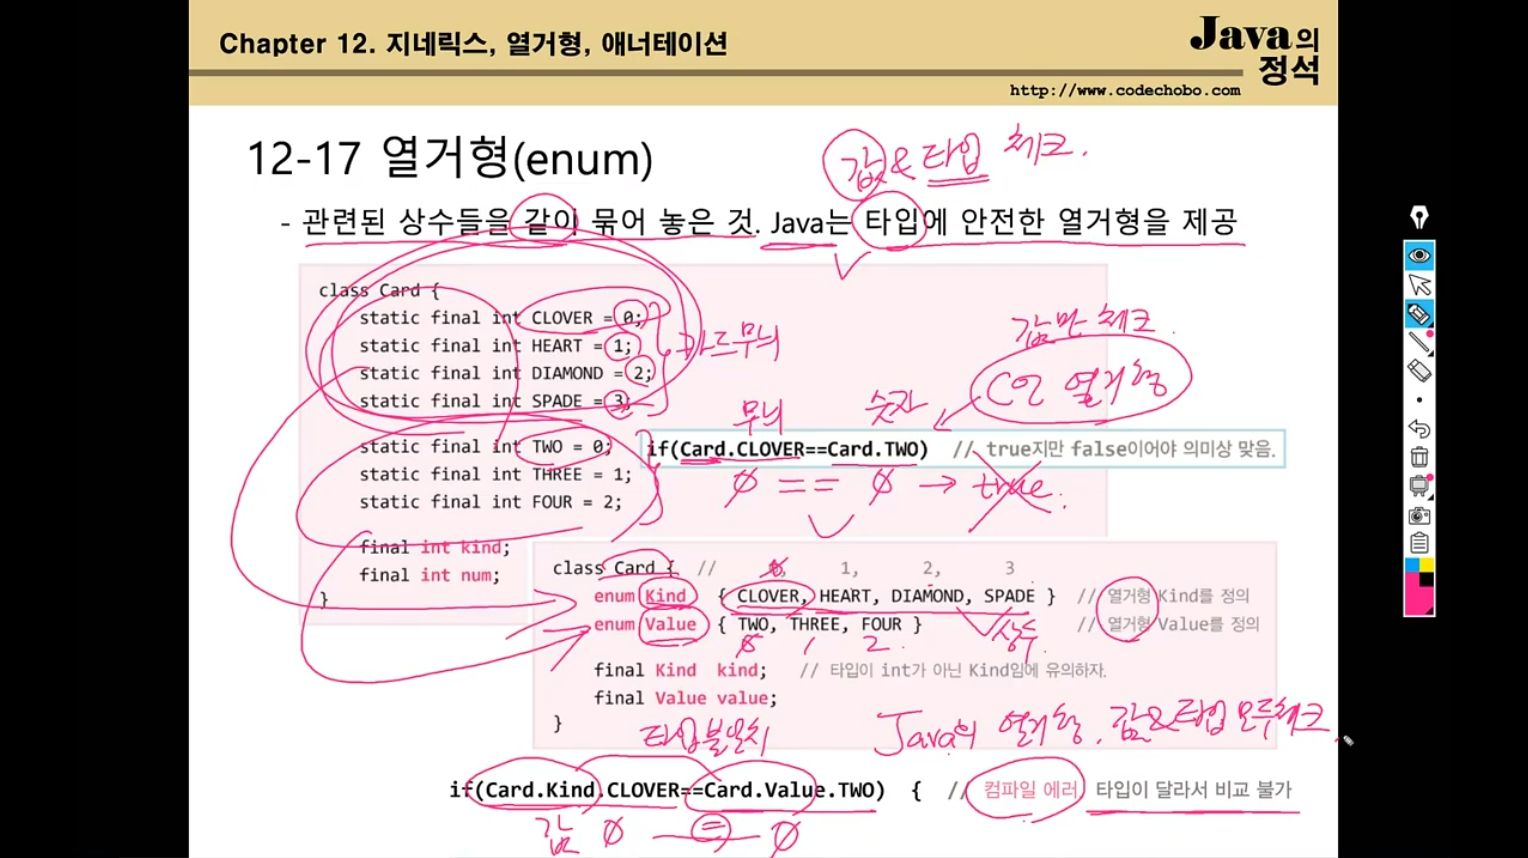 Chapter 12. 지네릭스, 열거형, 애너테이션
Java의
정석
http://www.codechobo.com
12-17 열거형(enum)
값&타입 체크.
- 관련된 상수들을 같이 묶어 놓은 것. Java는 타입에 안전한 열거형을 제공
class Card {
static final int CLOVER = 0;
static final int HEART = 1;
static final int DIAMOND = 2;
static final int SPADE = 3;
카드무늬
값만 체크
C언 열거형
무늬 숫자
static final int TWO = 0;
static final int THREE = 1;
static final int FOUR = 2;
if(Card.CLOVER==Card.TWO) // true지만 false이어야 의미상 맞음.
0 == 0 → true.
final int kind;
final int num;
}
class Card { // 0, 1, 2, 3
enum Kind { CLOVER, HEART, DIAMOND, SPADE } // 열거형 Kind를 정의
enum Value { TWO, THREE, FOUR } // 열거형 Value를 정의
0 1 2 상수
final Kind kind; // 타입이 int가 아닌 Kind임에 유의하자.
final Value value;
}
타입불일치
Java의 열거형, 값&타입 모두체크
if(Card.Kind.CLOVER==Card.Value.TWO) { // 컴파일 에러 타입이 달라서 비교 불가
값 0 = 0